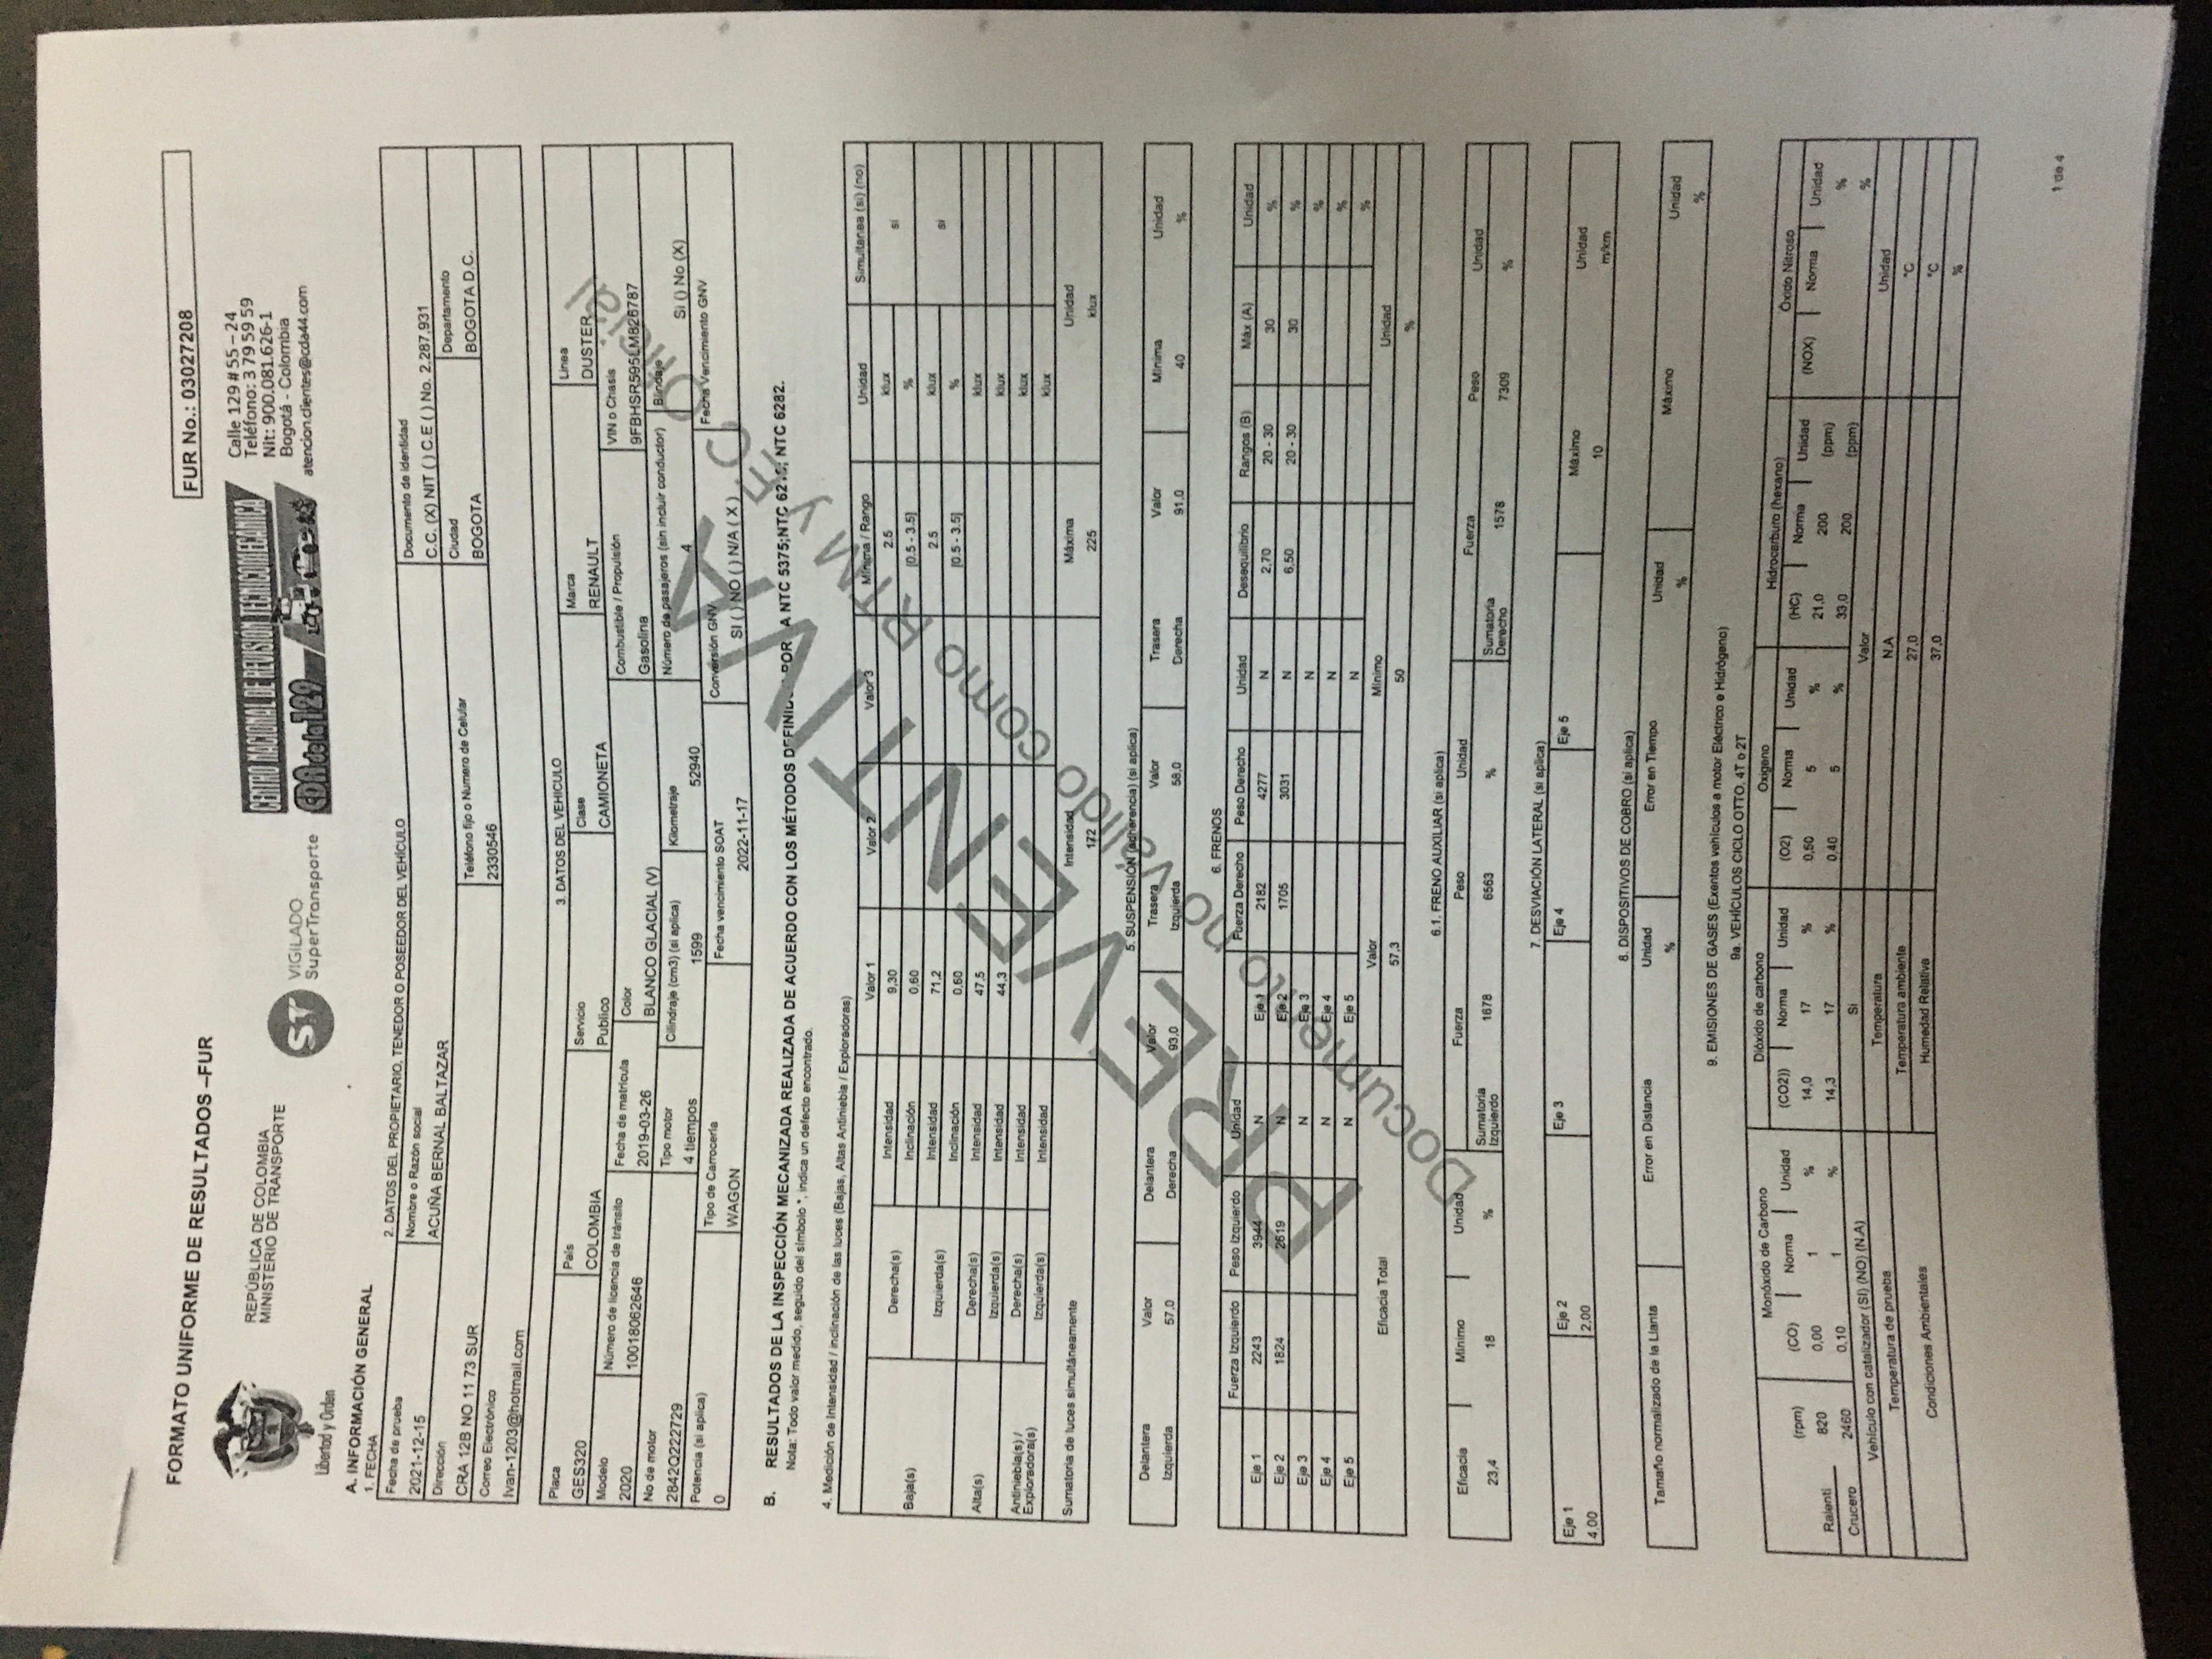 FORMATO UNIFORME DE RESULTADOS –FUR
FUR No.: 03027208
Libertad y Orden
REPÚBLICA DE COLOMBIA
MINISTERIO DE TRANSPORTE
ST VIGILADO
SuperTransporte
CENTRO NACIONAL DE REVISIÓN TECNICOMECÁNICA
CDA de la 129
Calle 129 # 55 – 24
Teléfono: 3 79 59 59
Nit: 900.081.626-1
Bogotá - Colombia
atencion.clientes@cda44.com
A. INFORMACIÓN GENERAL
1. FECHA
2. DATOS DEL PROPIETARIO, TENEDOR O POSEEDOR DEL VEHÍCULO
Fecha de prueba Nombre o Razón social Documento de identidad
2021-12-15 ACUÑA BERNAL BALTAZAR C.C. (X) NIT ( ) C.E ( ) No. 2,287,931
Dirección Teléfono fijo o Numero de Celular Ciudad Departamento
CRA 12B NO 11 73 SUR 2330546 BOGOTA BOGOTA D.C.
Correo Electrónico
Ivan-1203@hotmail.com
3. DATOS DEL VEHICULO
Placa País Servicio Clase Marca Linea
GES320 COLOMBIA Publico CAMIONETA RENAULT DUSTER
Modelo Número de licencia de tránsito Fecha de matrícula Color Combustible / Propulsión VIN o Chasis
2020 10018062646 2019-03-26 BLANCO GLACIAL (V) Gasolina 9FBHSR595LM826787
No de motor Tipo motor Cilindraje (cm3) (si aplica) Kilometraje Número de pasajeros (sin incluir conductor) Blindaje
2842Q222729 4 tiempos 1599 52940 4 Si () No (X)
Potencia (si aplica) Tipo de Carrocería Fecha vencimiento SOAT Conversión GNV Fecha Vencimiento GNV
0 WAGON 2022-11-17 SI ( ) NO ( ) N/A ( X )
B. RESULTADOS DE LA INSPECCIÓN MECANIZADA REALIZADA DE ACUERDO CON LOS MÉTODOS DEFINIDOS POR A NTC 5375;NTC 6218; NTC 6282.
Nota: Todo valor medido, seguido del símbolo *, indica un defecto encontrado.
4. Medición de Intensidad / inclinación de las luces (Bajas, Altas Antiniebla / Exploradoras)
Valor 1 Valor 2 Valor 3 Mínima / Rango Unidad Simultanea (si) (no)
Baja(s) Derecha(s) Intensidad 9,30 2.5 klux si
Inclinación 0,60 [0.5 - 3.5] %
Izquierda(s) Intensidad 71,2 2.5 klux si
Inclinación 0,60 [0.5 - 3.5] %
Alta(s) Derecha(s) Intensidad 47,5 klux
Izquierda(s) Intensidad 44,3 klux
Antiniebla(s) / Exploradora(s) Derecha(s) Intensidad klux
Izquierda(s) Intensidad klux
Sumatoria de luces simultáneamente Intensidad 172 Máxima 225 Unidad klux
5. SUSPENSIÓN (adherencia) (si aplica)
Delantera Valor Delantera Valor Trasera Valor Trasera Valor Minima Unidad
Izquierda 57,0 Derecha 93,0 Izquierda 58,0 Derecha 91,0 40 %
6. FRENOS
Fuerza Izquierdo Peso Izquierdo Unidad Fuerza Derecho Peso Derecho Unidad Desequilibrio Rangos (B) Máx (A) Unidad
Eje 1 2243 3944 N Eje 1 2182 4277 N 2,70 20 - 30 30 %
Eje 2 1824 2619 N Eje 2 1705 3031 N 6,50 20 - 30 30 %
Eje 3 N Eje 3 N %
Eje 4 N Eje 4 N %
Eje 5 N Eje 5 N %
Eficacia Total Valor Mínimo Unidad
57,3 50 %
6.1. FRENO AUXILIAR (si aplica)
Eficacia Mínimo Unidad Sumatoria Izquierdo Fuerza Peso Unidad Sumatoria Derecho Fuerza Peso Unidad
23,4 18 % 1678 6563 % 1578 7309 %
7. DESVIACIÓN LATERAL (si aplica)
Eje 1 Eje 2 Eje 3 Eje 4 Eje 5 Máximo Unidad
4,00 2,00 10 m/km
8. DISPOSITIVOS DE COBRO (si aplica)
Tamaño normalizado de la Llanta Error en Distancia Unidad Error en Tiempo Unidad Máximo Unidad
% % %
9. EMISIONES DE GASES (Exentos vehículos a motor Eléctrico e Hidrógeno)
9a. VEHÍCULOS CICLO OTTO, 4T o 2T
Monóxido de Carbono Dióxido de carbono Oxígeno Hidrocarburo (hexano) Óxido Nitroso
(rpm) (CO) Norma Unidad (CO2)) Norma Unidad (O2) Norma Unidad (HC) Norma Unidad (NOX) Norma Unidad
Ralenti 820 0,00 1 % 14,0 17 % 0,50 5 % 21,0 200 (ppm) %
Crucero 2460 0,10 1 % 14,3 17 % 0,40 5 % 33,0 200 (ppm) %
Vehículo con catalizador (SI) (NO) (N.A) Si Valor Unidad
Temperatura de prueba Temperatura N.A °C
Condiciones Ambientales Temperatura ambiente 27,0 °C
Humedad Relativa 37,0 %
1 de 4
PREVENTIVA
Documento no válido como RTM y EC Oficial